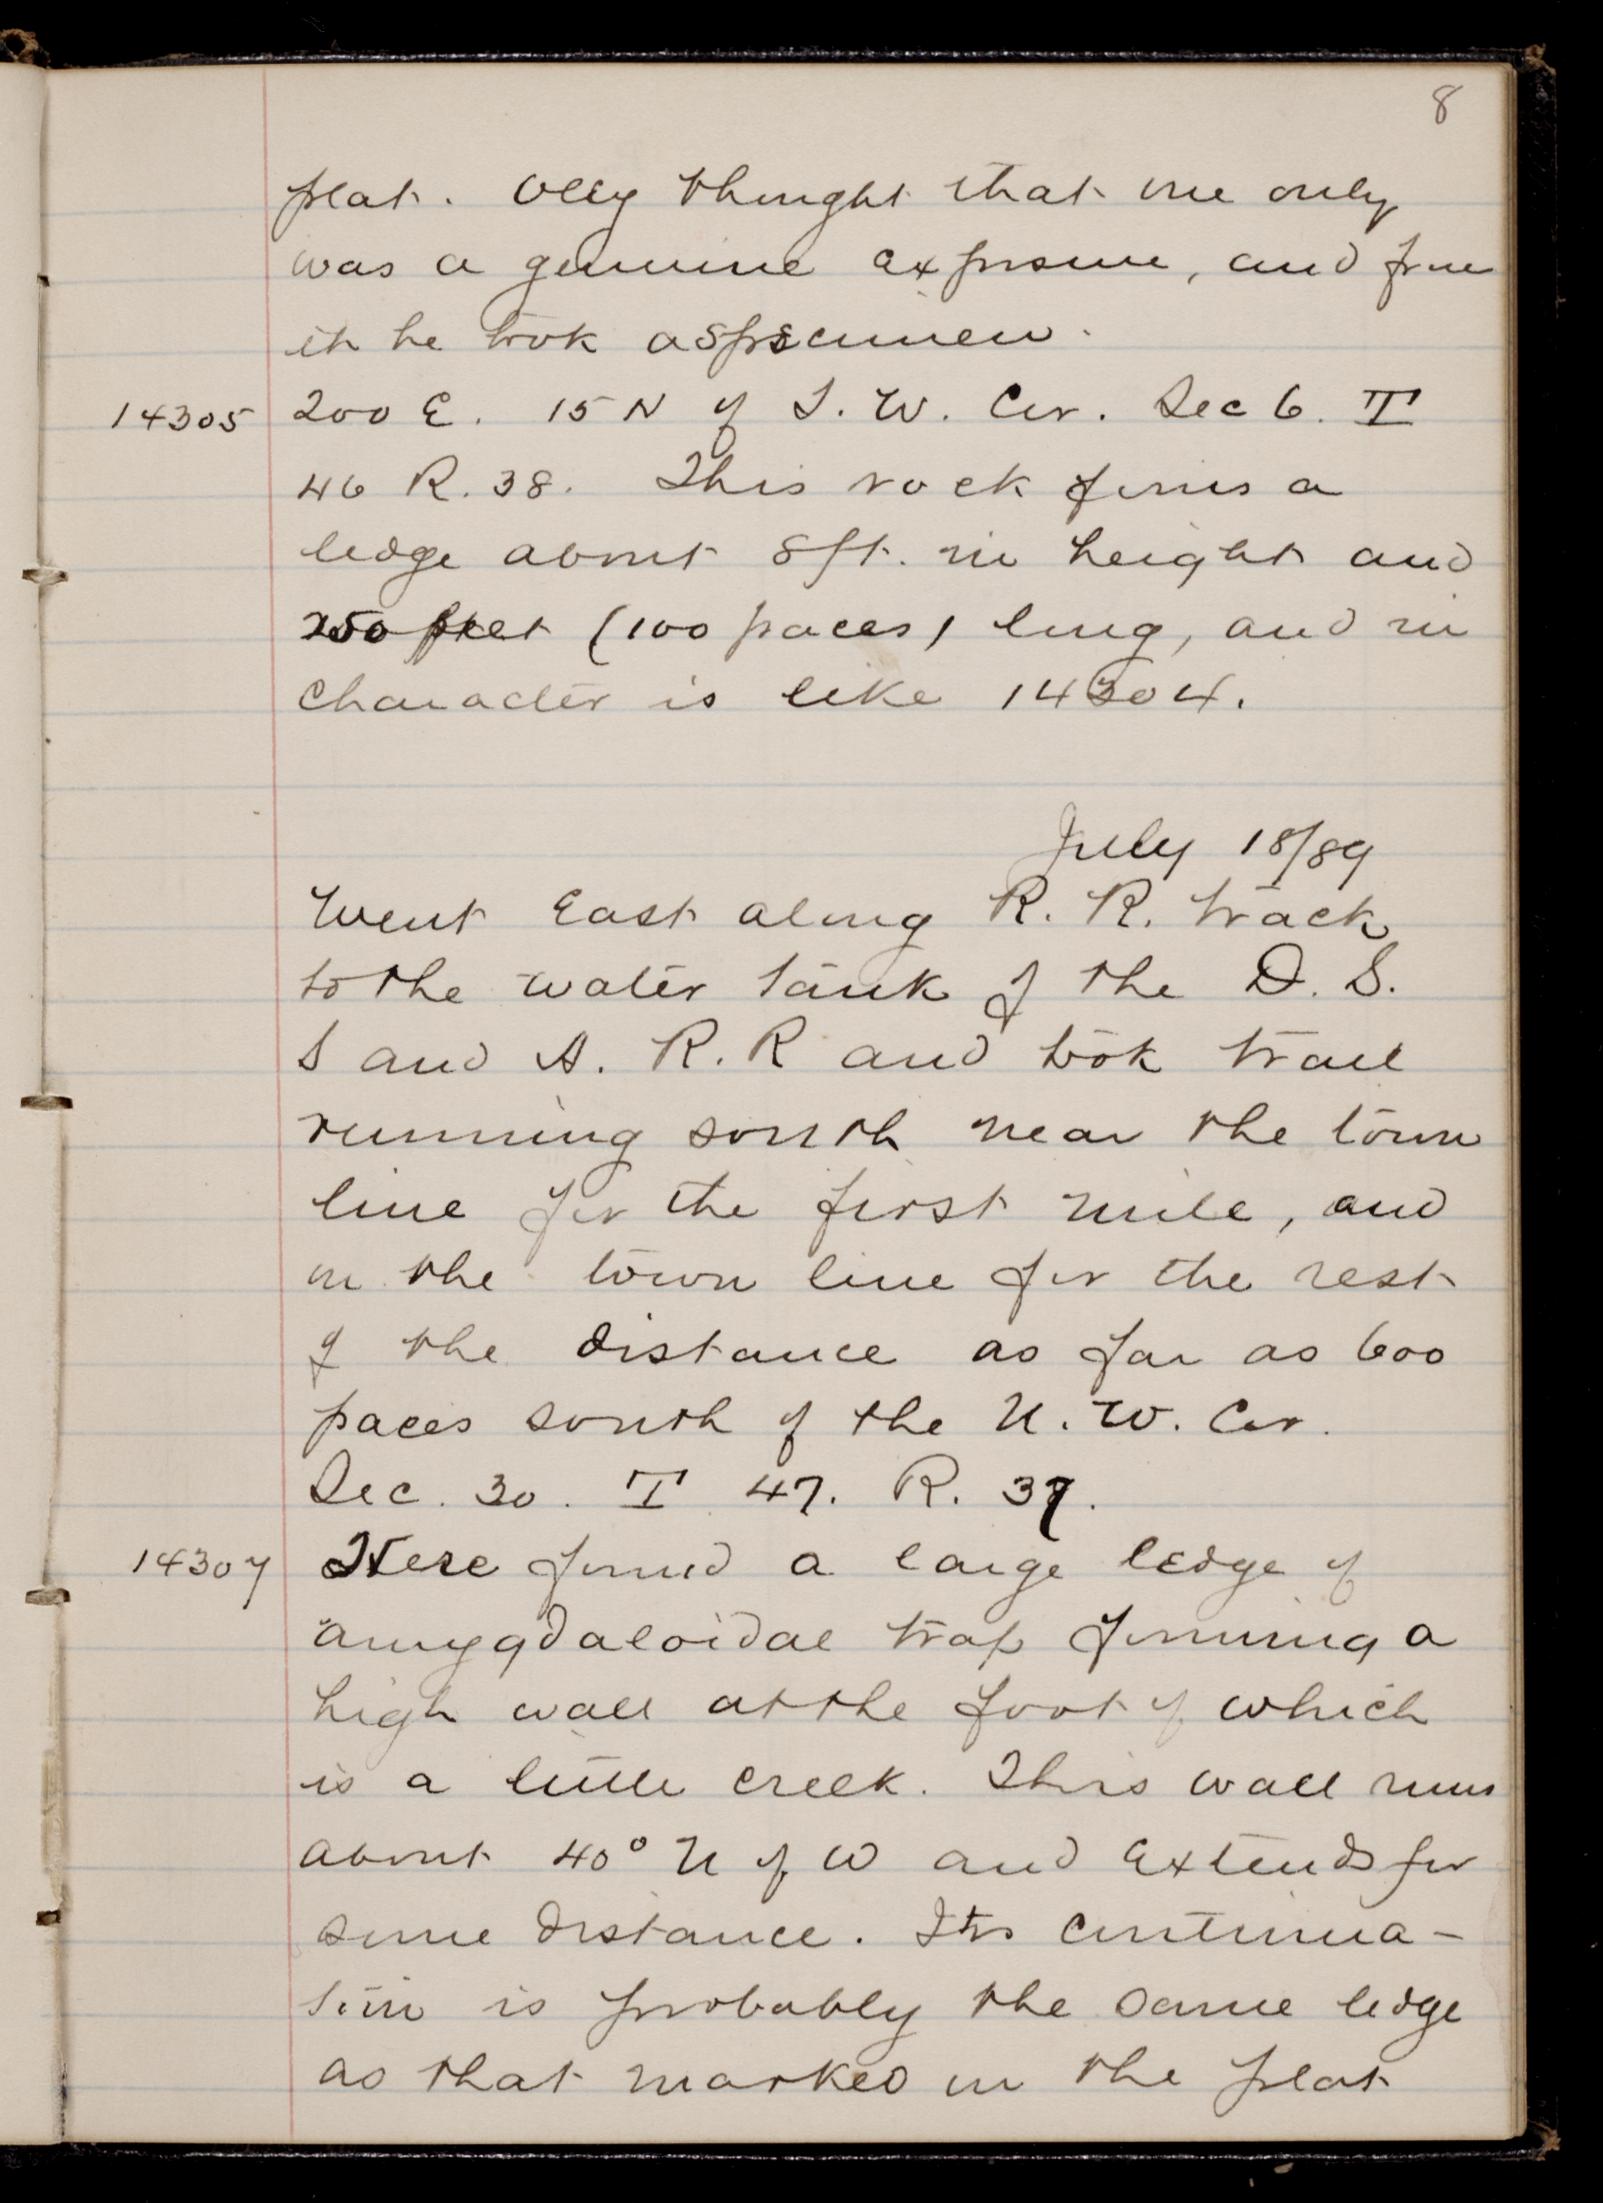 8
plat. Olly thought that one only
was a genuine exposure, and from
it he took a specimen.
14305 200 E. 15 N of S. W. Cor. Sec 6. T
46 R. 38. This rock forms a
ledge about 8 ft. in height and
250 feet (100 paces) long, and in
character is like 14304.
July 18/89
Went East along R. R. track
to the water tank of the D. S.
S and A. R. R and took trail
running south near the town
line for the first mile, and
on the town line for the rest
of the distance as far as 600
paces south of the N. W. Cor.
Sec. 30. T 47. R. 37.
14307 Here found a large ledge of
amygdaloidal trap forming a
high wall at the foot of which
is a little creek. This wall runs
about 40° N of W and Extends for
some distance. Its continua-
tion is probably the same ledge
as that marked on the plat